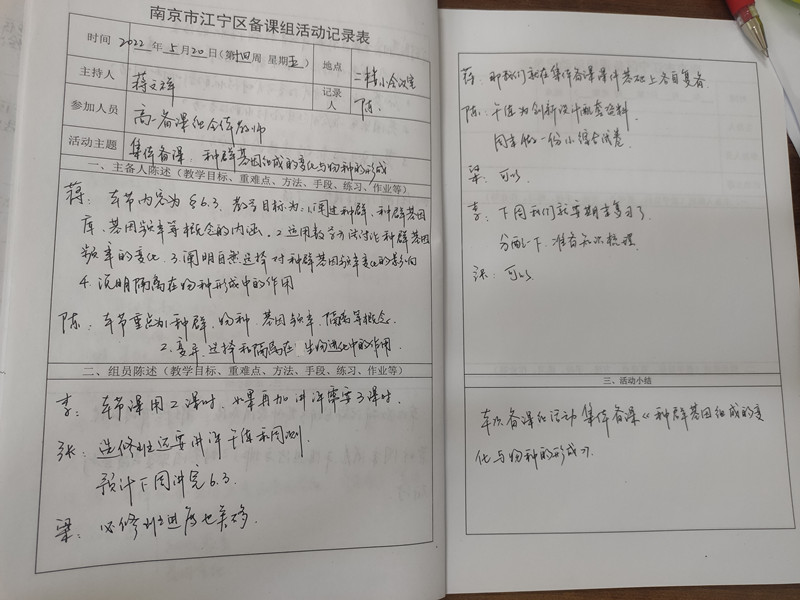 南京市江宁区备课组活动记录表
时间 2022 年 5 月 20 日(第十四周 星期五) 地点 二楼小会议室
主持人 蒋文祥 记录人 陈
参加人员 高一备课组全体教师
活动主题 集体备课：种群基因组成的变化与物种的形成
一、主备人陈述（教学目标、重难点、方法、手段、练习、作业等）
蒋：本节内容为§6.3，教学目标为：1.阐述种群、种群基因
库、基因频率等概念的内涵。2.运用数学方法讨论种群基因
频率的变化。3.阐明自然选择对种群基因频率变化的影响
4.说明隔离在物种形成中的作用
陈：本节重点为1.种群、物种、基因频率、隔离等概念.
2.变异、选择和隔离在生物进化中的作用.
二、组员陈述（教学目标、重难点、方法、手段、练习、作业等）
李：本节课用2课时，如果再加讲评需要3课时.
张：选修班还要讲评干练和周测.
预计下周讲完6.3.
梁：必修班进度也差不多.
蒋：那我们就在集体备课课件基础上各自复备.
陈：干练为创新设计配套资料.
周末做一份小综合试卷.
梁：可以.
李：下周我们就要期末复习了.
分配一下，准备知识梳理.
张：可以.
三、活动小结
本次备课组活动集体备课《种群基因组成的变
化与物种的形成》.